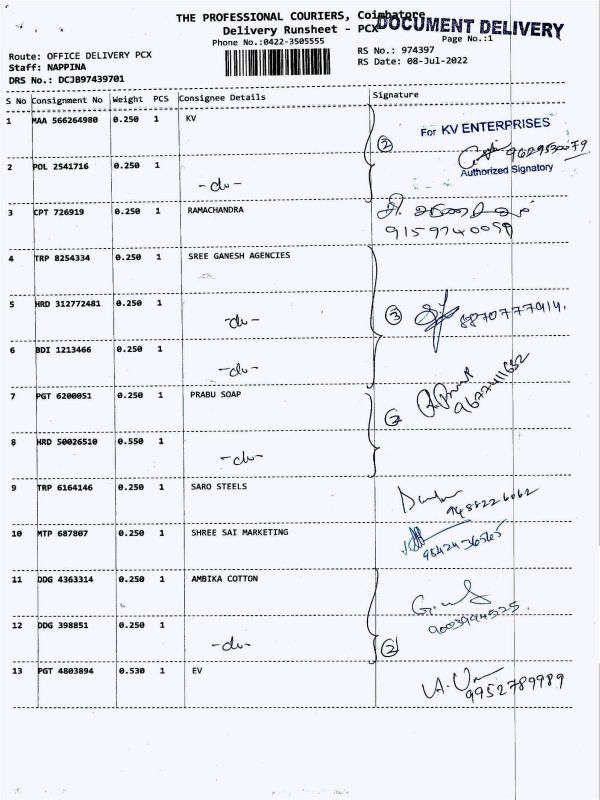 THE PROFESSIONAL COURIERS, Coimbatore
DOCUMENT DELIVERY
Delivery Runsheet - PCX
Phone No.:0422-3505555
Page No.:1
Route: OFFICE DELIVERY PCX
RS No.: 974397
Staff: NAPPINA
RS Date: 08-Jul-2022
DRS No.: DCJB97439701
S No Consignment No Weight PCS Consignee Details Signature
1 MAA 566264980 0.250 1 KV
For KV ENTERPRISES
② 9629530079
Authorized Signatory
2 POL 2541716 0.250 1
-do-
3 CPT 726919 0.250 1 RAMACHANDRA
9159740059
4 TRP 8254334 0.250 1 SREE GANESH AGENCIES
5 HRD 312772481 0.250 1
-do- ③ 8870777914.
6 BDI 1213466 0.250 1
-do-
7 PGT 6200051 0.250 1 PRABU SOAP
② 9677411652
8 HRD 50026510 0.550 1
-do-
9 TRP 6164146 0.250 1 SARO STEELS
9488226062
10 MTP 687807 0.250 1 SHREE SAI MARKETING
11 DDG 4363314 0.250 1 AMBIKA COTTON
12 DDG 398851 0.250 1
-do- ②
13 PGT 4803894 0.530 1 EV
9952789989